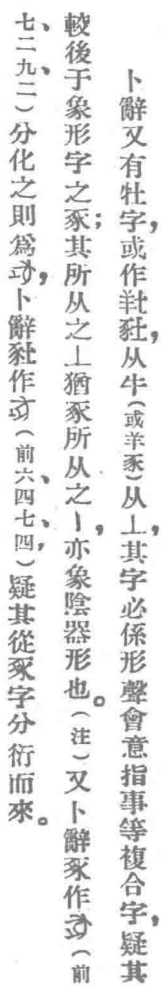 卜辭又有牡字，或作𤘅豼，从牛（或羊豕）从丄，其字必係形聲會意指事等複合字，疑其
較後于象形字之豕；其所从之丄猶豕所从之丨，亦象陰器形也。（注）又卜辭豕作（前
七、二九、二）分化之則爲，卜辭豼作（前六、四七、四）疑其從豕字分衍而來。